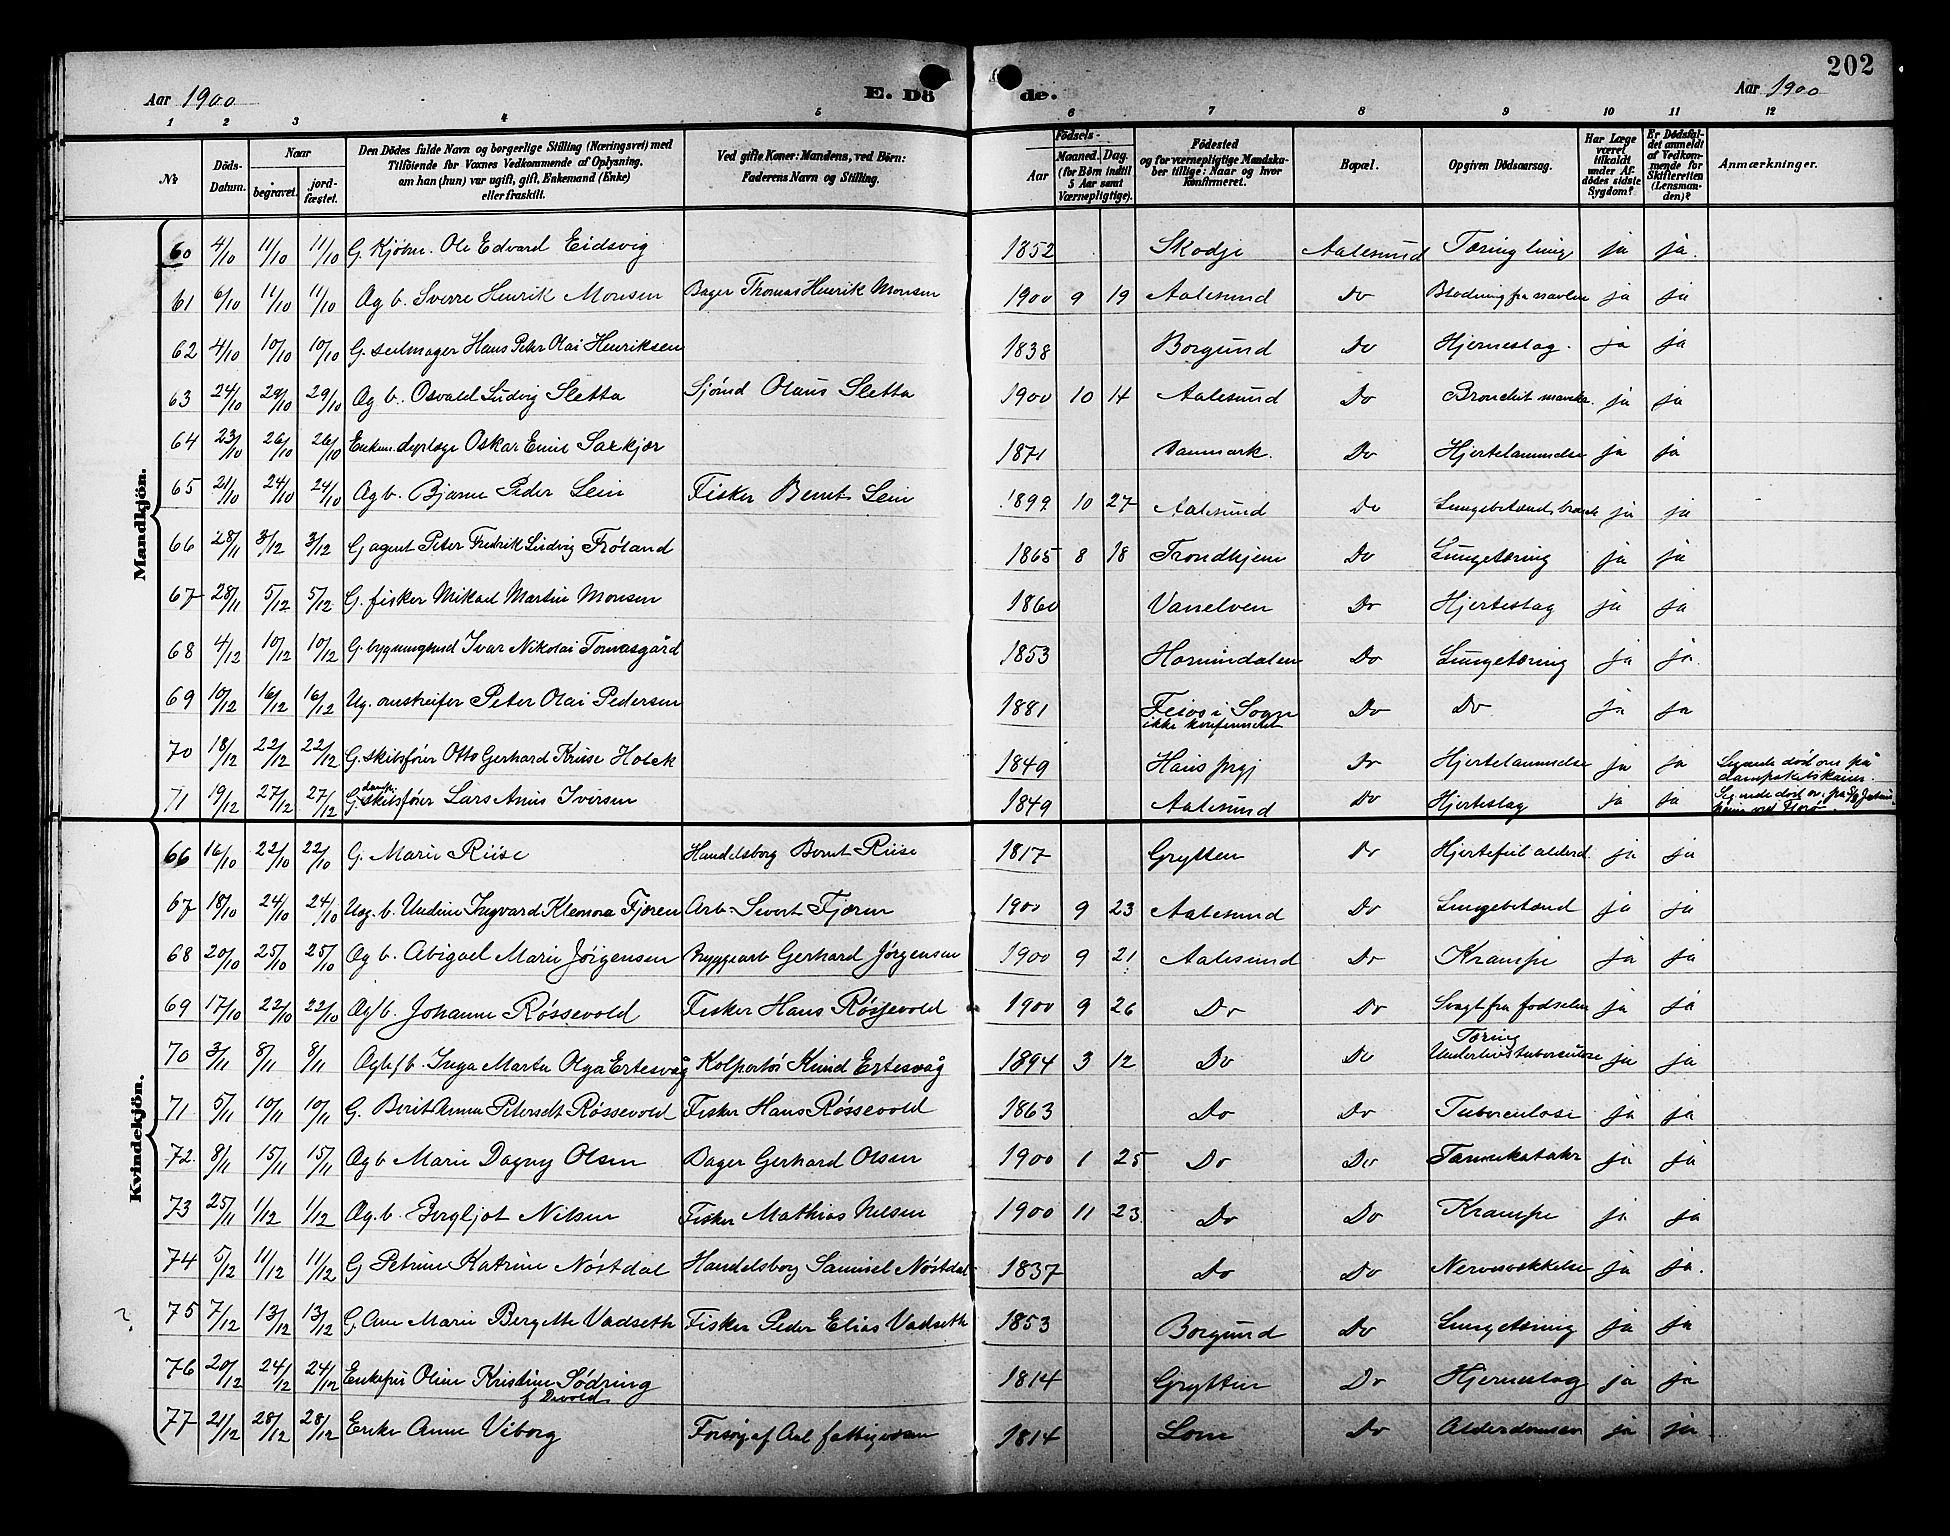 202
Aar 1900
E. Dö de.
Aar 1900
1 2 3 4 5 6 7 8 9 10 11 12
No
Döds-Datum.
Naar
begravet.
jord-fæstet.
Den Dödes fulde Navn og borgerlige Stilling (Næringsvei) med Tilföiende for Voxnes Vedkommende af Oplysning, om han (hun) var ugift, gift, Enkemand (Enke) eller fraskilt.
Ved gifte Koner: Mandens, ved Börn: Faderens Navn og Stilling.
Födsels-
Aar
Maaned. Dag.
(for Börn indtil 5 Aar samt Værnepligtige).
Födested og for værnepligtige Mandska-ber tillige: Naar og hvor Konfirmeret.
Bopæl.
Opgiven Dödsaarsag.
Har Læge været tilkaldt under Af-dödes sidste Sygdom?
Er Dödsfal-det anmeldt af Vedkom-mende for Skifteretten (Lensman-den)?
Anmærkninger.
Mandkjön.
60 4/10 11/10 11/10 G. Ole Edvard Eidsvig 1852 Skodje Aalesund Tæring ja ja.
61 6/10 11/10 11/10 Ug b. Sverre Henrik Monsen Bager Thomas Henrik Monsen 1900 9 19 Aalesund Do Blødning fra navlen ja ja
62 4/10 10/10 10/10 G. seilmager Hans Peter Olai Henriksen 1838 Borgund Do Hjerneslag. ja ja
63 24/10 29/10 29/10 Ug b. Osvald Ludvig Sletta Sjømd Olaus Sletta 1900 10 14 Aalesund Do Bronchit ja ja
64 23/10 26/10 26/10 Enkem. dyrlæge Oskar Emil Saxkjær 1871 Danmark. Do Hjertelammelse ja ja
65 21/10 24/10 24/10 Ug b. Bjarne Peder Lein Fisker Bernt Lein 1899 10 27 Aalesund Do Lungebetænd. ja ja
66 28/11 3/12 3/12 G agent Peter Fredrik Ludvig Frøland 1865 8 18 Trondhjem Do Lungetæring ja ja
67 28/11 5/12 5/12 G. fisker Mikael Martin Monsen 1860 Vanelven Do Hjerteslag ja ja
68 4/12 10/12 10/12 G. Ivar Nikolai Tomasgård 1853 Hornindalen Do Lungetæring ja ja.
69 10/12 16/12 16/12 Ug. omstreifer Peter Olai Pedersen 1881 Feios i Sogn
ikke konfirmeret Do Do ja ja
70 18/12 22/12 22/12 G. skibsfører Otto Gerhard Kruse Holck 1849 Hans prgj Do Hjertelammelse ja ja Segnede død om på dampskibskaien.
71 19/12 27/12 27/12 G. damp-skibsfører Lars Anus Iversen 1849 Aalesund Do Hjerteslag ja ja Segnede død om på ved Florø
Kvindekjön.
66 16/10 22/10 22/10 G. Marie Riise Handelsborg Bernt Riise 1817 Grytten Do Hjertefeil alderd. ja ja
67 18/10 24/10 24/10 Ug. b. Undine Ingvard Klemora Fjøren Arb. Sivert Fjøren 1900 9 23 Aalesund Do Lungebetænd ja ja
68 20/10 25/10 25/10 Ug b. Abigael Marie Jørgensen Bryggearb Gerhard Jørgensen 1900 9 21 Aalesund Do Krampe ja ja
69 17/10 22/10 22/10 Ug b. Johanne Røssevold Fisker Hans Røssevold 1900 9 26 Do Do Svagt fra fødselen ja ja
70 3/11 8/11 8/11 b. Inga Marta Olga Ertesvåg Kolportør Knud Ertesvåg 1894 3 12 Do Do Tæring
Underlivstuberculose ja ja
71 5/11 10/11 10/11 G. Berit Anna Petersdt Røssevold Fisker Hans Røssevold 1863 Do Do Tuberculose ja ja
72. 8/11 15/11 15/11 Ug b Marie Dagny Olsen Bager Gerhard Olsen 1900 1 25 Do Do Tarmkatahr ja ja
73 25/11 1/12 1/12 Ug. b. Bergljot Nilsen Fisker Mathias Nilsen 1900 11 23 Do Do Krampe ja ja
74 5/12 11/12 11/12 G Petrine Katrine Nøstdal Handelsborg Samuel Nøstdal 1837 Do Do Nervesvækkelse ja ja.
75 7/12 13/12 13/12 G. Ane Marie Bergette Vadseth Fisker Peder Elias Vadseth 1853 Borgund Do Lungetæring ja ja
76 20/12 24/12 24/12 Enkefru Oline Kristine Sødring
f Devold 1814 Grytten Do Hjerneslag ja ja
77 21/12 28/12 28/12 Enke Anne Viborg Forsørg. af Aal fattigvæsen 1814 Lom Do Alderdomssv ja ja